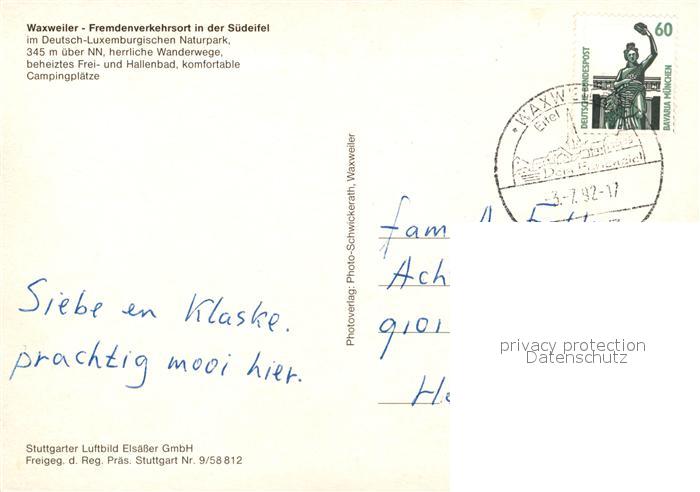 Waxweiler - Fremdenverkehrsort in der Südeifel
im Deutsch-Luxemburgischen Naturpark,
345 m über NN, herrliche Wanderwege,
beheiztes Frei- und Hallenbad, komfortable
Campingplätze
Siebe en Klaske.
prachtig mooi hier.
Stuttgarter Luftbild Elsäßer GmbH
Freigeg. d. Reg. Präs. Stuttgart Nr. 9/58 812
Photoverlag: Photo-Schwickerath, Waxweiler
60
DEUTSCHE BUNDESPOST
BAVARIA MÜNCHEN
Eifel
-3.-7.92-17
fam
Ach
9101
He
privacy protection
Datenschutz